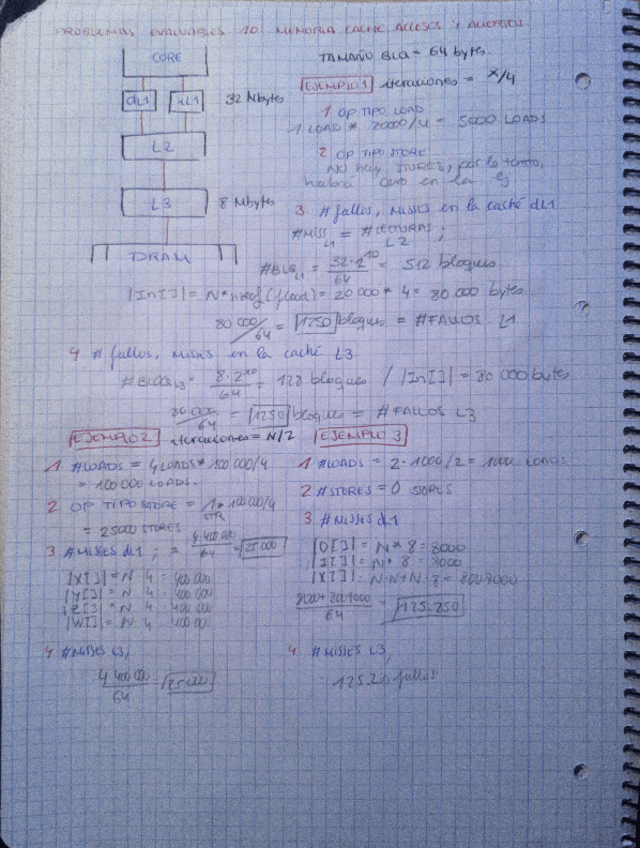 PROBLEMAS EVALUABLES 10: MEMORIA CACHÉ ACCESOS Y ALIENTOS
CORE
dL1
iL1
32 Mbytes
L2
L3
8 Mbytes
DRAM
TAMAÑO BLQ = 64 bytes.
EJEMPLO 1 iteraciones = x/4
1 OP TIPO LOAD
1 LOAD * 20000/4 = 5000 LOADS
2 OP TIPO STORE
NO hay STORES, por lo tanto,
habrá cero en la ej
3. # fallos, misses en la caché dL1
#MISS L1 = #LECTURAS L2 ;
#BLQ L1 = 32·2^10/64 = 512 bloques
|In[]| = N * nref (float) = 20000 * 4 = 80.000 bytes
80000/64 = 1250 bloques = #FALLOS L1
4. # fallos, misses en la caché L3
#BLOQ L3 = 8·2^10/64 = 128 bloques / |In[]| = 80 000 bytes
80000/64 = 1250 bloques = #FALLOS L3
EJEMPLO 2 iteraciones = N/2
1 #LOADS = 4 LOADS * 100.000/4
= 100 000 LOADS.
2 OP TIPO STORE = 1 STR * 100 000/4
= 25000 STORES
3 #MISSES dL1 ; = 4·400 000/64 = 25.000
|X[]| = N 4 = 400 000
|Y[]| = N 4 = 400 000
|Z[]| = N 4 = 400 000
|W[]| = N 4 = 400 000
4 #MISSES L3,
4·400 000/64 = 25000
EJEMPLO 3
1 #LOADS = 2·1000/2 = 1000 LOADS
2 #STORES = 0 STORES
3 #MISSES dL1
|O[]| = N * 8 = 8000
|I[]| = N * 8 = 8000
64 = 125.250
4 #MISSES L3,
125.250 fallos